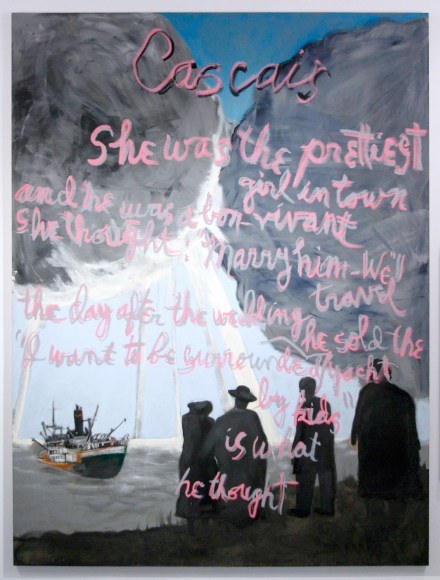 Cascais
She was the prettiest
girl in town
and he was a bon-vivant
she thought: "Marry him-We'll
travel
the day after the wedding
he sold the
yacht
"I want to be surrounded
by kids"
is what
he thought